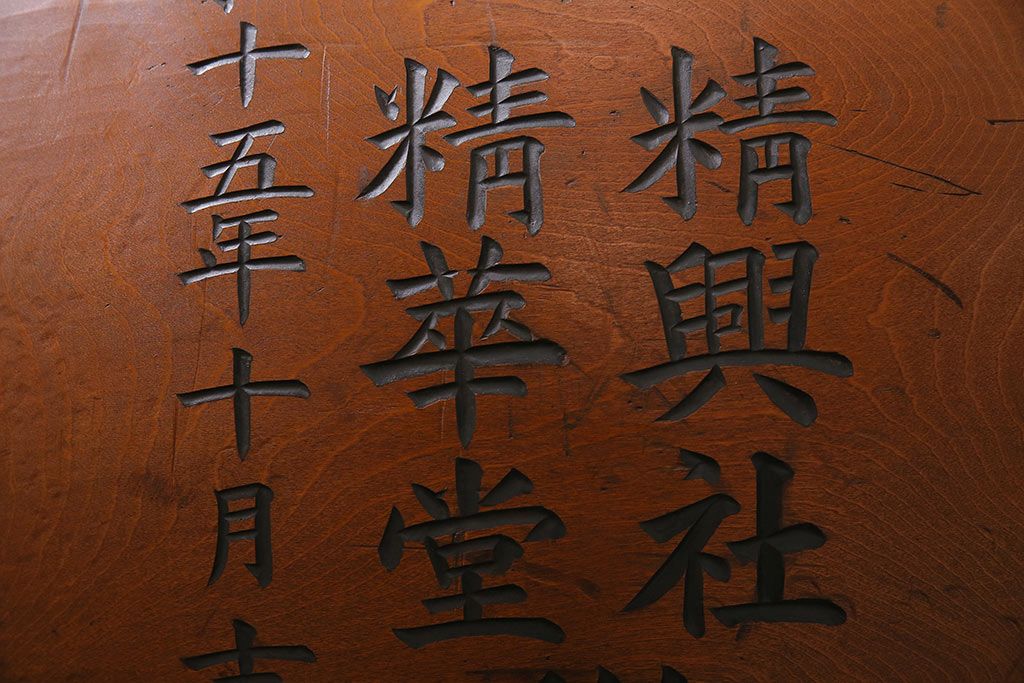 精興社
精華堂
十五年十月